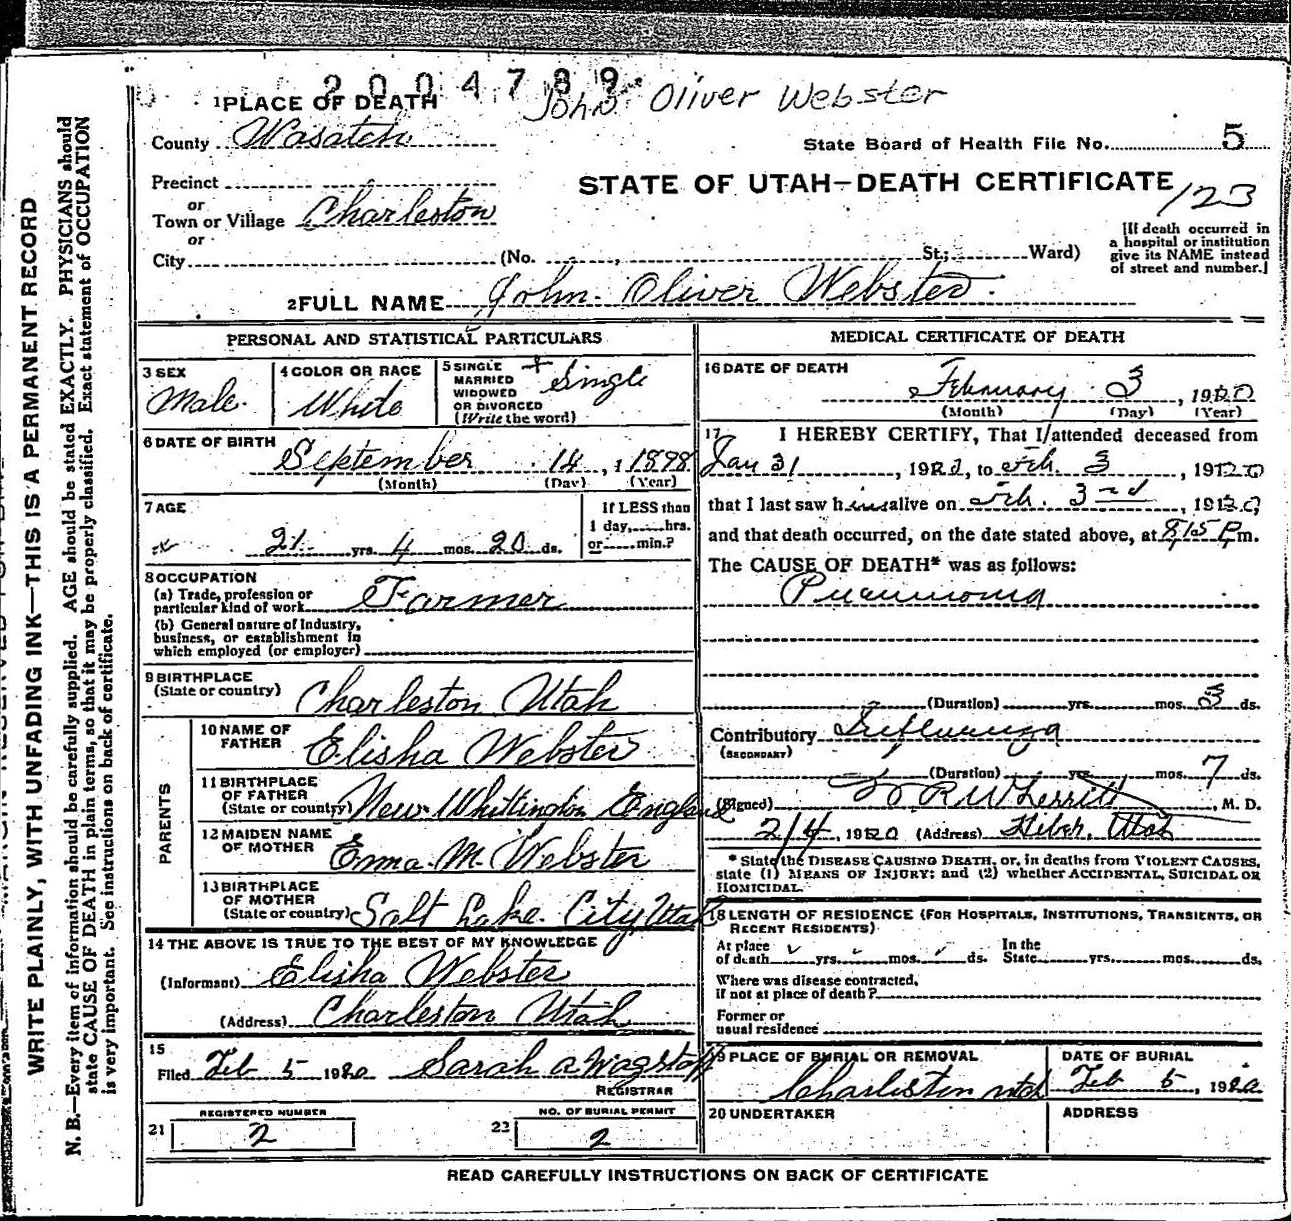 2004789
John Oliver Webster
1 PLACE OF DEATH
County Wasatch
State Board of Health File No. 5
Precinct
STATE OF UTAH—DEATH CERTIFICATE
123
or
Town or Village Charleston
or
City (No. St.; Ward)
[If death occurred in
a hospital or institution
give its NAME instead
of street and number.]
2 FULL NAME John Oliver Webster
PERSONAL AND STATISTICAL PARTICULARS
3 SEX
Male
4 COLOR OR RACE
White
5 SINGLE
MARRIED
WIDOWED
OR DIVORCED
(Write the word)
+ Single
6 DATE OF BIRTH
September 14, 1898
(Month) (Day) (Year)
7 AGE
21 yrs. 4 mos. 20 ds.
If LESS than
1 day, hrs.
or min.?
8 OCCUPATION
(a) Trade, profession or
particular kind of work Farmer
(b) General nature of Industry,
business, or establishment in
which employed (or employer)
9 BIRTHPLACE
(State or country) Charleston Utah
PARENTS
10 NAME OF
FATHER Elisha Webster
11 BIRTHPLACE
OF FATHER
(State or country) New Whittington England
12 MAIDEN NAME
OF MOTHER Emma M. Webster
13 BIRTHPLACE
OF MOTHER
(State or country) Salt Lake City, Utah
14 THE ABOVE IS TRUE TO THE BEST OF MY KNOWLEDGE
(Informant) Elisha Webster
(Address) Charleston Utah
15
Filed Feb 5 1920 Sarah A Wagstaff
REGISTRAR
REGISTERED NUMBER
21 2
NO. OF BURIAL PERMIT
22 2
MEDICAL CERTIFICATE OF DEATH
16 DATE OF DEATH
February 3, 1920
(Month) (Day) (Year)
17 I HEREBY CERTIFY, That I attended deceased from
Jan 31, 1920, to Feb. 3, 1920
that I last saw him alive on Feb. 3rd, 1920,
and that death occurred, on the date stated above, at 8,15 P.m.
The CAUSE OF DEATH* was as follows:
Pneumonia
(Duration) yrs. mos. 3 ds.
Contributory Influenza
(SECONDARY)
(Duration) yrs. mos. 7 ds.
(Signed) W R Wherritt, M. D.
2/4, 1920 (Address) Heber, Utah
* State the DISEASE CAUSING DEATH, or, in deaths from VIOLENT CAUSES,
state (1) MEANS OF INJURY; and (2) whether ACCIDENTAL, SUICIDAL OR
HOMICIDAL.
18 LENGTH OF RESIDENCE (FOR HOSPITALS, INSTITUTIONS, TRANSIENTS, OR
RECENT RESIDENTS)
At place
of death yrs. mos. ds.
In the
State yrs. mos. ds.
Where was disease contracted,
if not at place of death?
Former or
usual residence
19 PLACE OF BURIAL OR REMOVAL
Charleston Utah
DATE OF BURIAL
Feb 5, 1920
20 UNDERTAKER
ADDRESS
READ CAREFULLY INSTRUCTIONS ON BACK OF CERTIFICATE
WRITE PLAINLY, WITH UNFADING INK—THIS IS A PERMANENT RECORD
N. B.—Every item of information should be carefully supplied. AGE should be stated EXACTLY. PHYSICIANS should
state CAUSE OF DEATH in plain terms, so that it may be properly classified. Exact statement of OCCUPATION
is very important. See instructions on back of certificate.